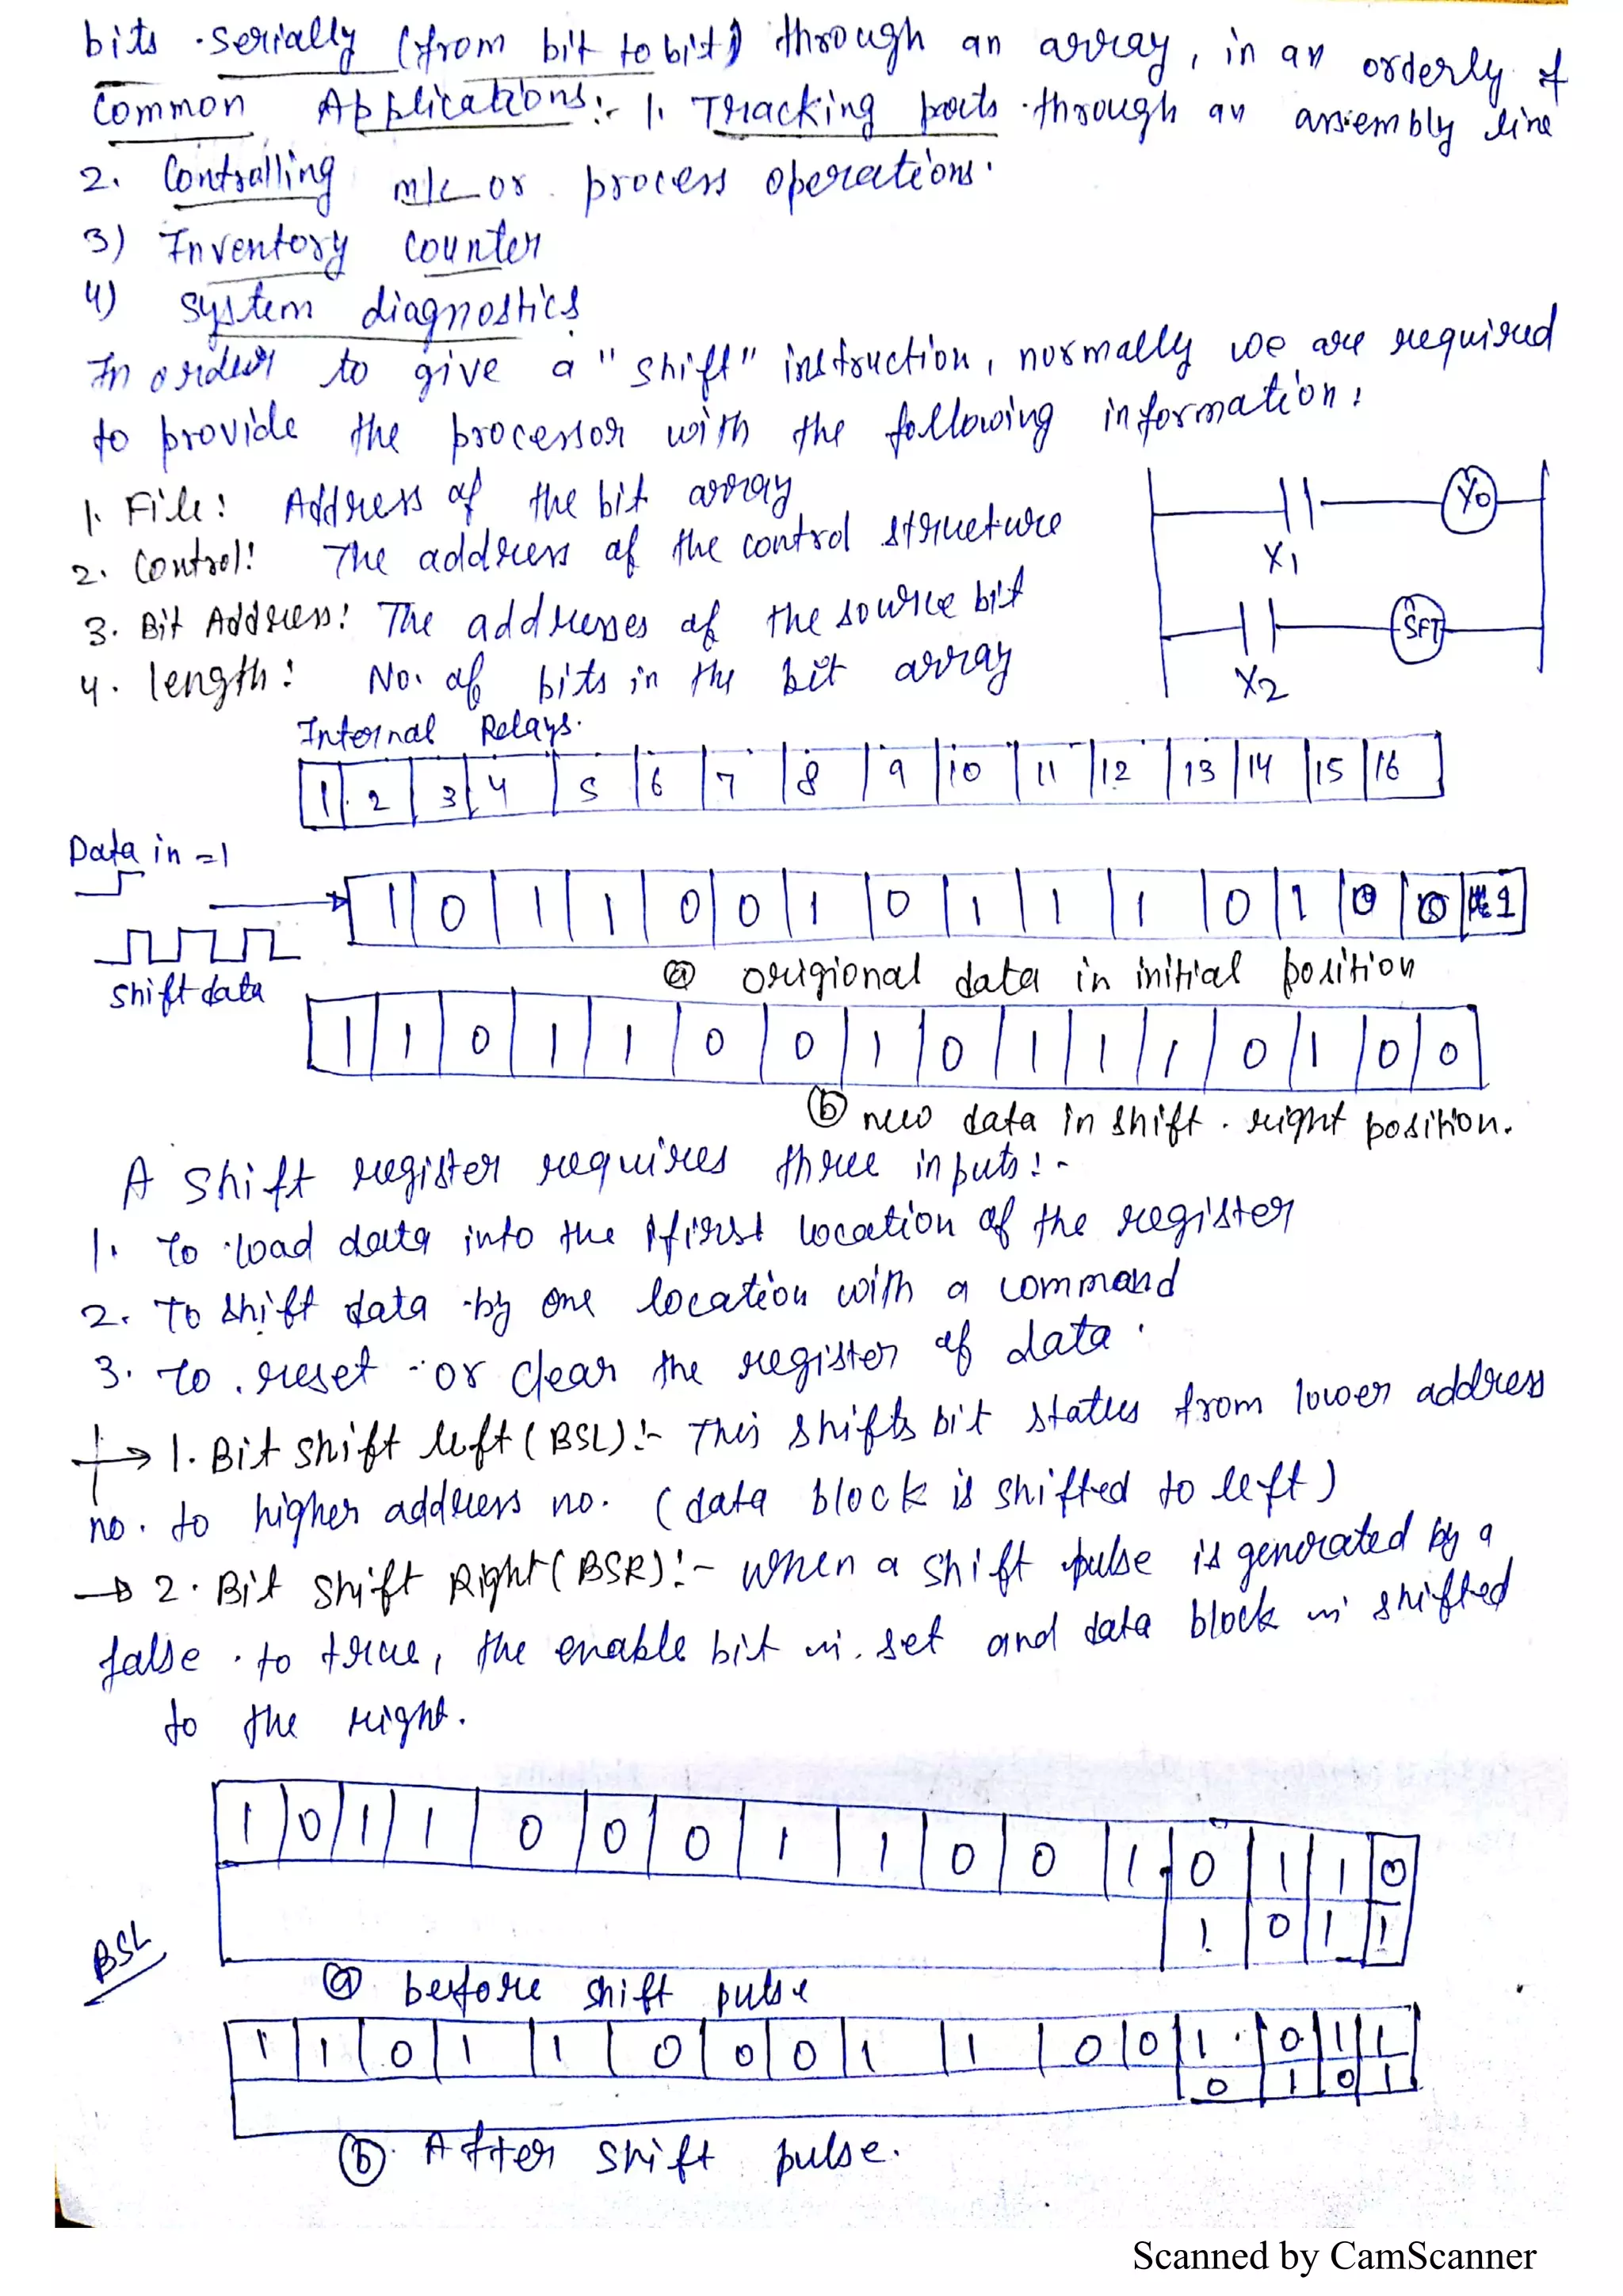 bits serially (from bit to bit) through an array, in an orderly f
Common Applications:- 1. Tracking parts through an assembly line
2. Controlling m/c or process operations.
3) Inventory counter
4) System diagnostics
In order to give a "shift" instruction, normally we are required
to provide the processor with the following information:
1. File: Address of the bit array
2. Control: The address of the control structure
3. Bit Address: The addresses of the source bit
4. length: No. of bits in the bit array
Y0
X1
SFT
X2
Internal Relays.
1 2 3 4 5 6 7 8 9 10 11 12 13 14 15 16
Data in = 1
1 0 1 1 0 0 1 0 1 1 1 0 1 0 0 1
Shift data
(a) origional data in initial position
1 1 0 1 1 0 0 1 0 1 1 1 0 1 0 0
(b) new data in shift right position.
A shift register requires three inputs:-
1. To load data into the first location of the register
2. To shift data by one location with a command
3. To reset or clear the register of data.
→ 1. Bit shift left (BSL):- This shifts bit status from lower address
no. to higher address no. (data block is shifted to left)
→ 2. Bit Shift Right (BSR):- When a shift pulse is generated by a
false to true, the enable bit is set and data block is shifted
to the right.
1 0 1 1 0 0 0 1 1 0 0 1 0 1 1 0
1 0 1 1
BSL
(a) before shift pulse
1 1 0 1 1 0 0 0 1 1 0 0 1 0 1 1
0 1 0 1
(b) After shift pulse.
Scanned by CamScanner